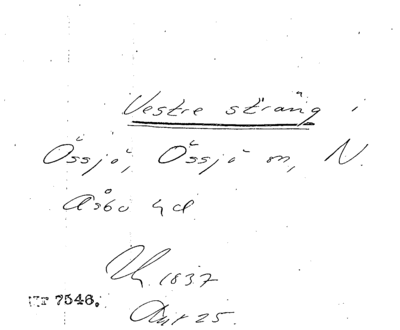 Vestre sträng i
Össjö, Össjö sn, N.
Åsbo hd
Uh. 1837
Nr 7546.
Akt 25.